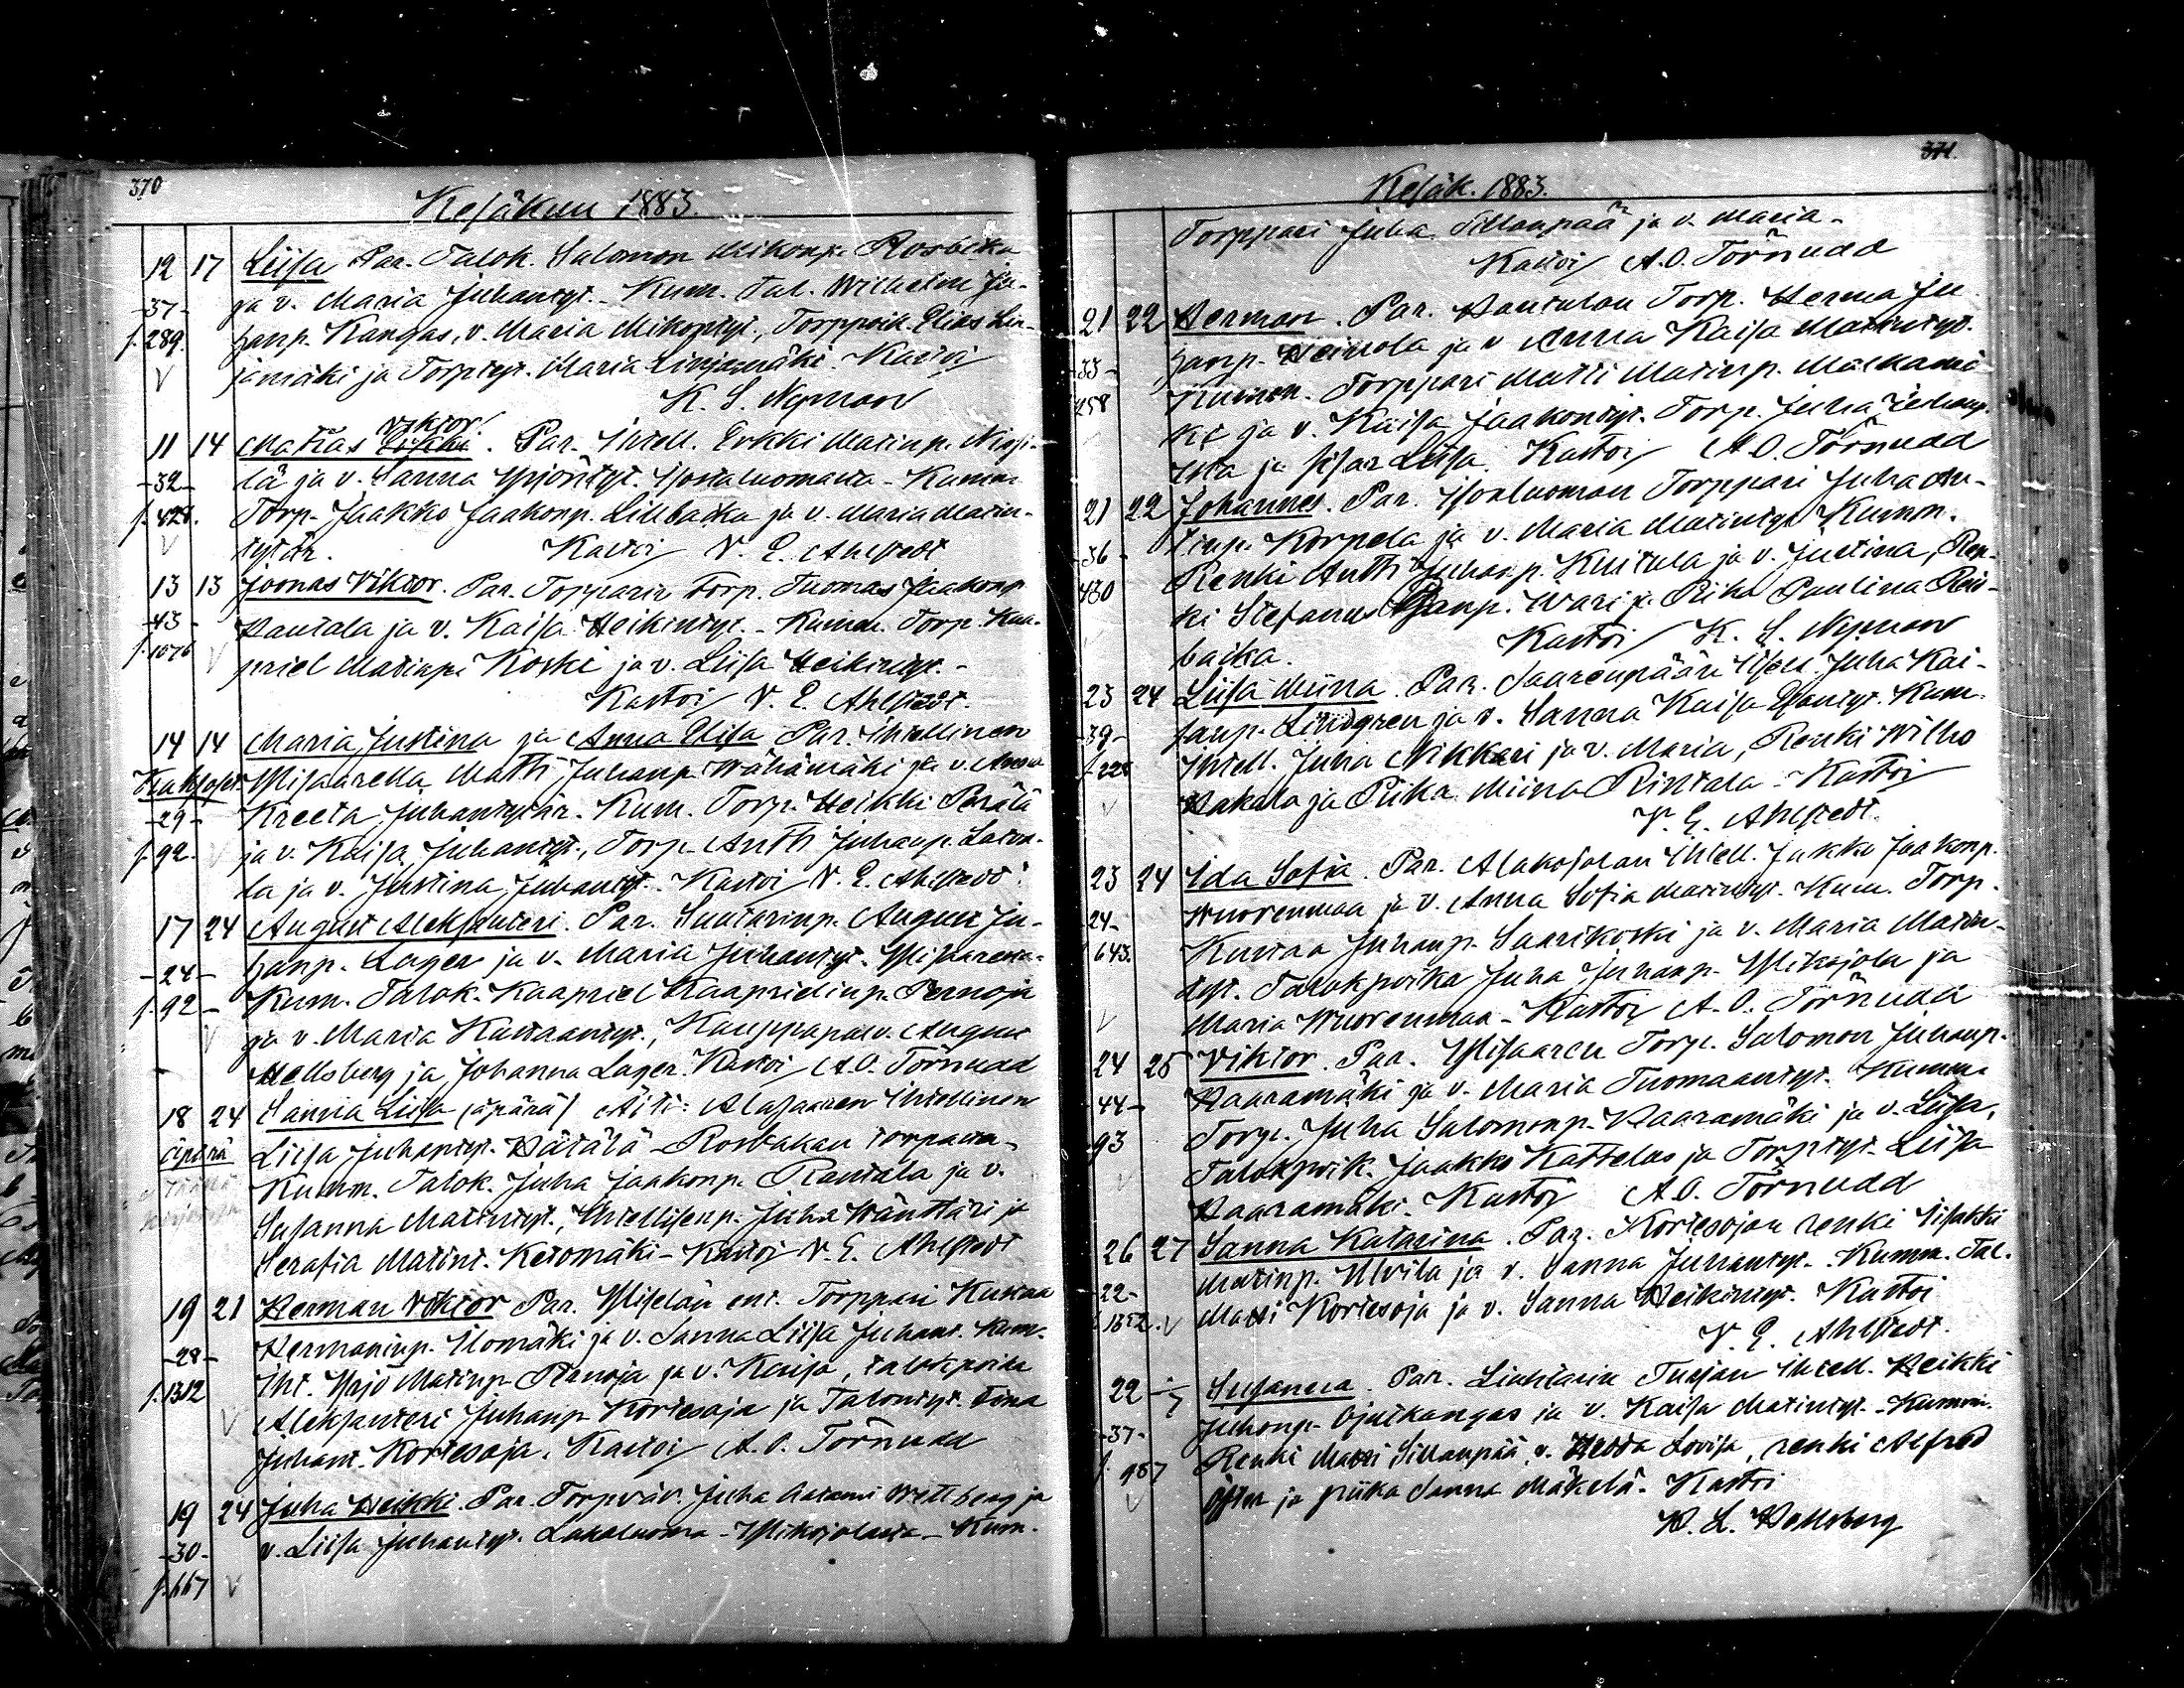 370
Kesäkuu 1883.
12 17 Liisa Par. Talok. Salomon Mikonp. Rosbäka
-37- ja v. Maria Juhantyt. - Kum. Tal. Wilhelm Ju-
s. 289. hanp. Kangas, v. Maria Mikontyt., Torppoik. Elias Lin-
V jamäki ja Torptyt. Maria Linjamäki. Kastoi
K. S. Nyman
Viktor
11 14 Matias Erkki. Par. Itsell. Erkki Matinp.
-32- lä ja v. Sanna Yrjöntyt. Isostaluomasta - Kumm.
s. 428. Torp. Jaakko Jaakonp. Lillbacka ja v. Maria Matin-
V tytär. Kastoi V. E. Ahlstedt
13 13 Joonas Viktor. Par. Topparin Torp. Tuomas Jaakonp.
-43- Hautala ja v. Kaisa Heikintyt. - Kumm. Torp. Kaa-
s. 1076 V priel Matinp. Koski ja v. Liisa Heikintyt. -
Kastoi V. E. Ahlstedt.
14 14 Maria Justina ja Anna Elisa Par. Itsellinen
Kaksoset Ylisaarella Matti Juhanp. Wähämäki ja v. Anna
-29- Kreeta Juhantytär. Kum. Torp. Heikki Perälä
s. 92. V ja v. Kaisa Juhantyt., Torp. Antti Juhanp. Latva-
la ja v. Justina Juhantyt. Kastoi V. E. Ahlstedt
17 24 August Aleksanteri. Par. Suutarinp. August Ju-
-24- hanp. Lager ja v. Maria Juhantyt. Ylisaaresta-
s. 92 - Kum. Talok. Kaapriel Kaaprielinp. Pernoja
V ja v. Maria Kustaantyt., Kauppapalv. August
Hellsberg ja Johanna Lager. Kastoi A.O. Törnudd
18 24 Sanna Liisa (äpärä) Äiti: Alasaaren Itsellinen
äpärä Liisa Juhantyt. Hätälä Rosbakan torpasta-
Kumm. Talok. Juha Jaakonp. Rantala ja v.
Susanna Matintyt., Itsellisenp. Juha Wänttäri ja
Serafia Matint. Ketomäki - Kastoi V. E. Ahlstedt
19 21 Herman Viktor Par. Yliselän ent. Torppari Kustaa
-28- Hermaninp. Ilomäki ja v. Sanna Liisa Juhant. Kum-
s. 1312 Its. Yrjö Matinp. Pernoja ja v. Kaisa, talokpoika
V Aleksanteri Juhanp. Kortesoja ja Talontyt. Tiina
Juhant. Kortesoja. Kastoi A. O. Törnudd
19 24 Juha Heikki Par. Torpväv. Juha Aatami Wettberg ja
-30- v. Liisa Juhantyt. Lakaluoma - Ylikojolasta - Kum.
s. 667 V
371.
Kesäk. 1883.
Torppari Juha Sillanpää ja v. Maria -
Kastoi A. O. Törnudd
21 22 Herman. Par. Hantulan Torp. Herma Ju
-33- hanp. Heikkola ja v. Anna Kaisa Matintyt.
458 Kumm. Torppari Matti Matinp. Malkamä
ki ja v. Kaisa Jaakontyt. Torp. Juha Juhanp.
ja sisar Liisa. Kastoi A. O. Törnudd
21 22 Johannes. Par. Isonluoman Torppari Juha An-
-36- tinp. Korpela ja v. Maria Matintyt. Kumm.
430 Renki Antti Juhanp. Kuitula ja v. Justina, Ren-
ki Stefanus Wari ja Piika Paulina Ros-
backa. Kastoi K. S. Nyman
23 24 Liisa Miina. Par. Saarenpään Itsell. Juha Kai-
-39- sanp. Lindgren ja v. Sanna Kaisa Esantyt. Kum.
s. 228 Itsell. Juha Nikkari ja v. Maria, Renki Wilho
V Hakala ja Piika Miina Rintala - Kastoi
V. E. Ahlstedt.
23 24 Ida Sofia. Par. Alakojolan Itsell. Jaakko Jaakonp.
24- Wuorenmaa ja v. Anna Sofia Matintyt. Kum. Torp.
643. Kustaa Juhanp. Saarikoski ja v. Maria Matin-
tyt. Talokpoika Juha Juhanp. Ylikojola ja
V Maria Wuorenmaa - Kastoi A. O. Törnudd
24 25 Viktor. Par. Ylisaaren Torp. Salomon Juhanp.
-44- Haaramäki ja v. Maria Tuomaantyt. Kumm.
93 Torp. Juha Salomonp. Haaramäki ja v. Liisa,
V Talokpoik. Jaakko Kattelus ja Torptyt. Liisa
Haaramäki. Kastoi A. O. Törnudd
26 27 Sanna Katarina. Par. Kortesojan renki Iisakki
22- Matinp. Ulvila ja v. Sanna Juhantyt. - Kumm. Tal.
1352. V Matti Kortesoja ja v. Sanna Heikintyt. Kastoi
V. E. Ahlstedt.
22 Susanna. Par. Liuhtarin Turjan Itsell. Heikki
-37- Juhonp. Ojutkangas ja v. Kaisa Matintyt. - Kumm.
957 Renki Matti Sillanpää, v. Hedda Lovisa, renki Alfred
V ja piika Sanna Mäkelä. Kastoi
K. L. Hellsberg